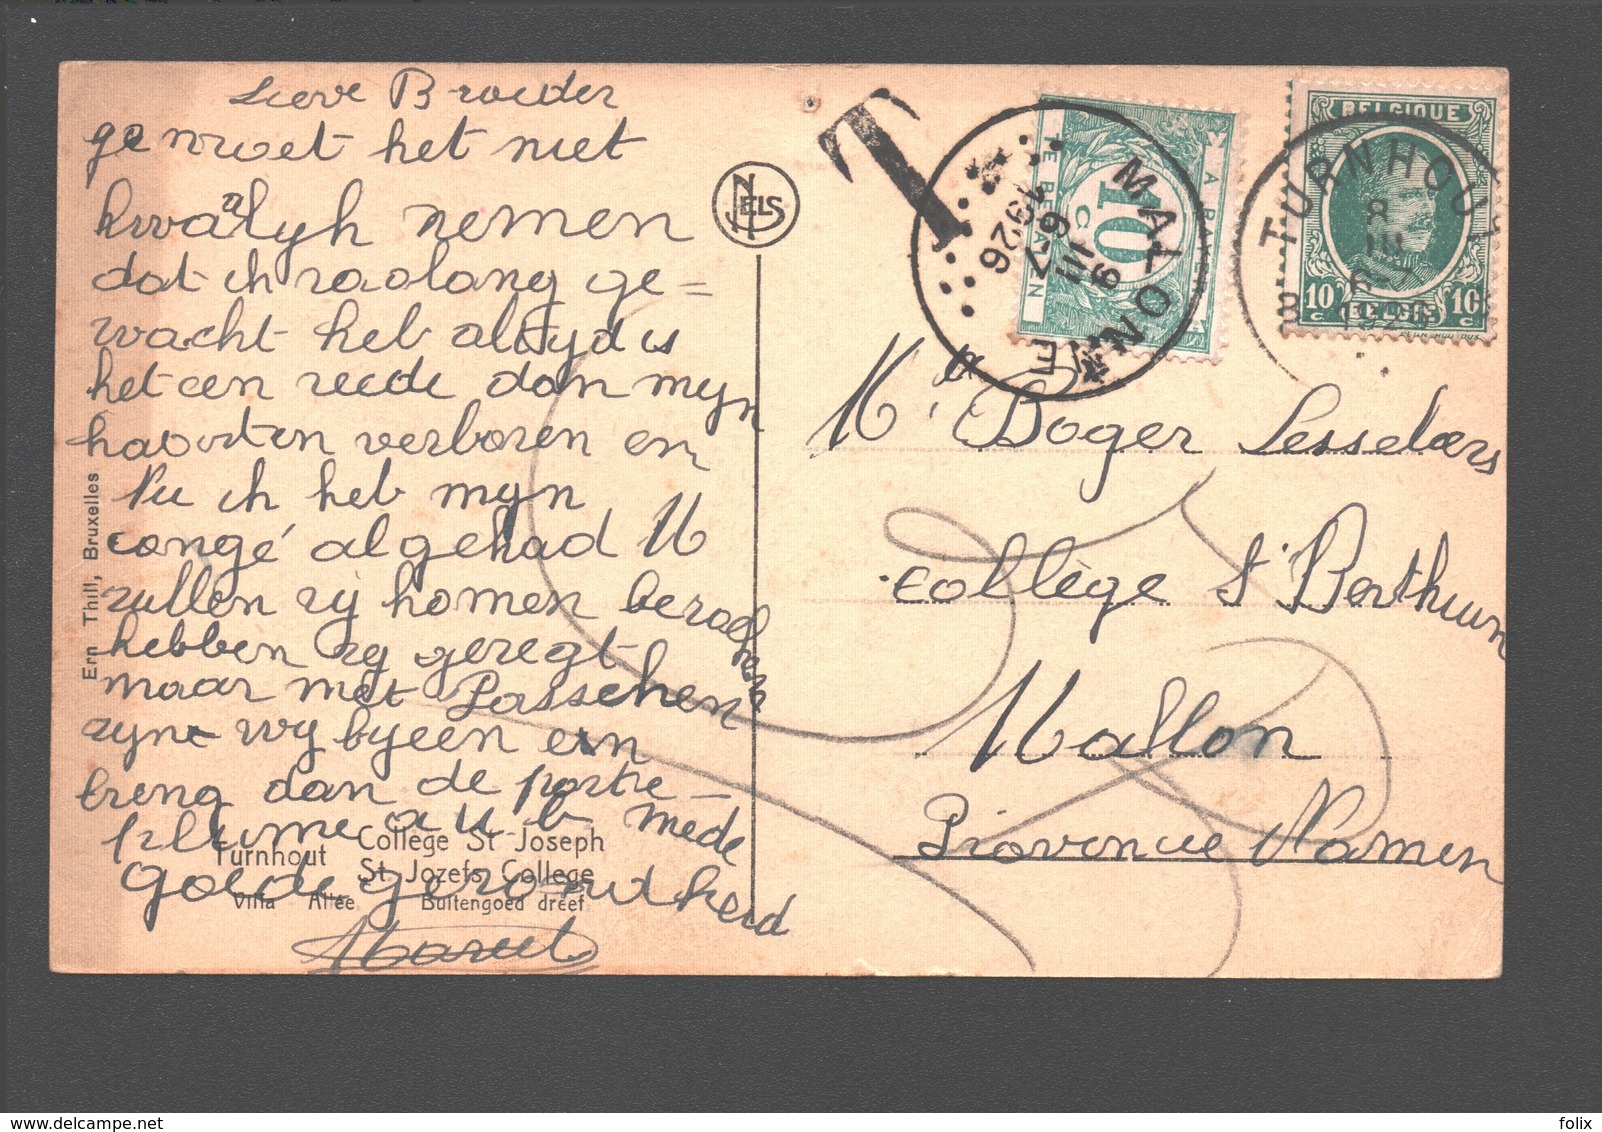 Lieve Broeder
ge moet het niet
kwalyk nemen
dat ik zoolang ge=
wacht heb altyd is
het een reede dan myn
kaarten verloren en
Nu ik heb myn
congé al gehad U
zullen zy komen bezoeken
hebben zy gezegt
maar met Passchen
zyne wy byeen en
breng dan de porte-
plume a u b mede
goede gezondheid
Marcel
Turnhout
Collège St Joseph
St. Jozefs College
Villa Allée
Buitengoed dreef
Ern Thill, Bruxelles
NELS
T
MALONNE
9
III
6-7
1926
TE BETALEN
A PAYER
10
C
BELGIQUE
10 c
BELGIE
10 c
TURNHOUT
8
III
6-7
1926
Mr Roger Lesselaers
Collège St Berthuin
Mallon
Province Namen
delcampe.net
folix